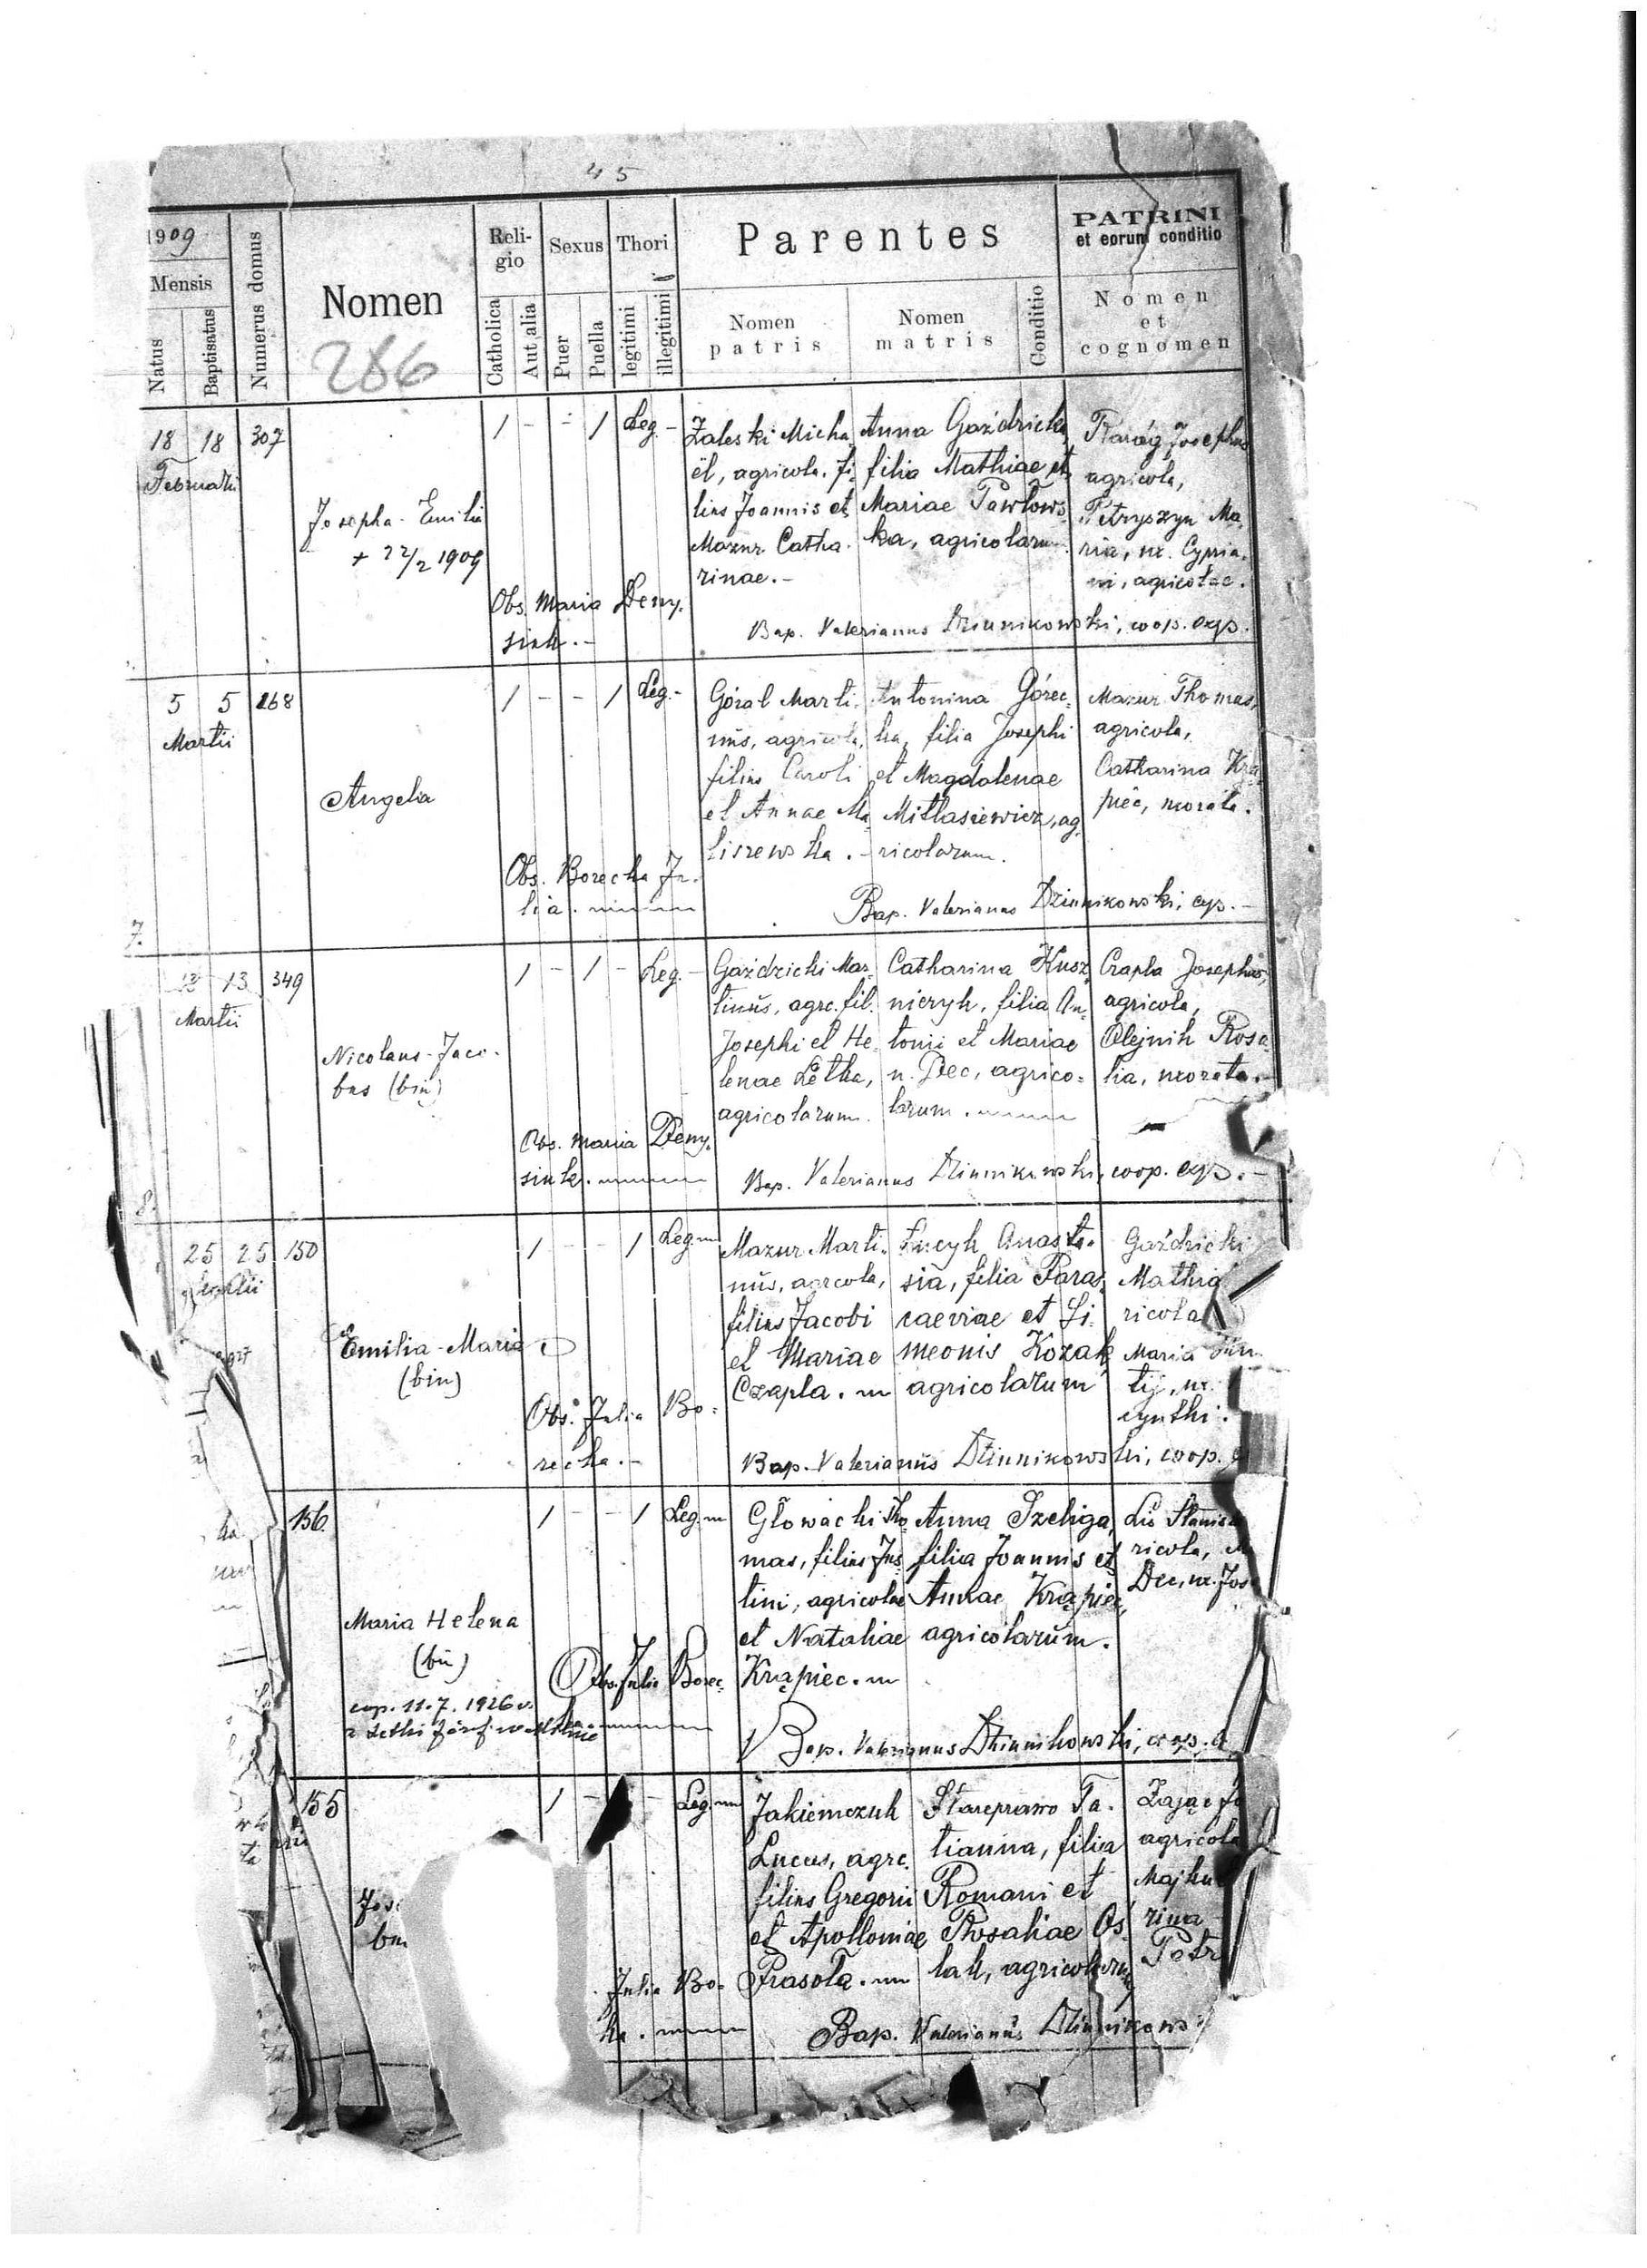 45
1909
Mensis
Natus
Baptisatus
Numerus domus
Nomen
286
Reli-
gio
Catholica
Aut alia
Sexus
Puer
Puella
Thori
legitimi
illegitimi
Parentes
Nomen
patris
Nomen
matris
Conditio
PATRINI
et eorum conditio
Nomen
et
cognomen
18 18 307
Februarii
Josepha-Emilia
+ 22/2 1909
/ - - / Leg. -
Obs. Maria Deny-
siuk.-
Zaleski Micha-
ël, agricola. fi-
lius Joannis et
Mazur Catha-
rinae.-
Anna Gaździcka
filia Mathiae et
Mariae Pawłows-
ka, agricolarum.
Raróg Josephus
agricola,
Petryszyn Ma-
ria, ux. Cypria-
ni, agricolae.
Bap. Valerianus Dziunikowski, coop. exp.
5 5 268
Martii
Angela
/ - - / Leg.-
Obs. Borecka Ju-
lia.
Góral Marti-
nus, agricola,
filius Caroli
et Annae Ma-
liszewska.-
Antonina Górec-
ka, filia Josephi
et Magdalenae
Mitlasiewicz, ag-
ricolarum.
Mazur Thomas,
agricola,
Catharina Kra-
piec, uxorata.
Bap. Valerianus Dziunikowski, exp.-
7.
13 13 349
Martii
Nicolaus-Jaco-
bus (bin)
/ - / - Leg.-
Obs. Maria Deny-
siuk.
Gaździcki Mar-
tinus, agrc. fil.
Josephi et He-
lenae Letka,
agricolarum.
Catharina Kusz-
nieryk, filia An-
tonii et Mariae
n. Dec, agrico-
larum.
Czapla Josephus,
agricola,
Olejnik Rosa-
lia, uxorata.-
Bap. Valerianus Dziunikowski, coop. exp.-
8.
25 25 150
Emilia-Maria
(bin)
/ - - / Leg.
Obs. Julia Bo-
recka.-
Mazur Marti-
nus, agrcola,
filius Jacobi
et Mariae
Czapla.
Anasta-
sia, filia Paras-
caeviae et Si-
meonis Kozak
agricolarum
Gaździcki
Mathia
ricola
Maria
ux.
Bap. Valerianus Dziunikowski, coop.
156.
Maria Helena
(bin)
cop. 11.7.1926 r.
/ - - / Leg.
Obs. Julia Borec-
ka.
Głowacki Tho-
mas, filius Jus-
tini, agricolae
et Nataliae
Krąpiec.
Anna Szeliga,
filia Joannis et
Annae Krąpiec,
agricolarum.
Lis Stanis
ricola,
Dec, ux. Jos
Bap. Valerianus Dziunikowski, exp.
155
Jos
bu
/ - - Leg.
Julia Bo-
ka.
Jakiemczuk
Lucas, agrc.
filius Gregorii
et Apolloniae
Prasoła.
Stareprawo Ta-
tianna, filia
Romani et
Rosaliae Os-
lak, agricolarum
Zając Jo
agricola
Majku
rina
Petr
Bap. Valerianus Dziunikows